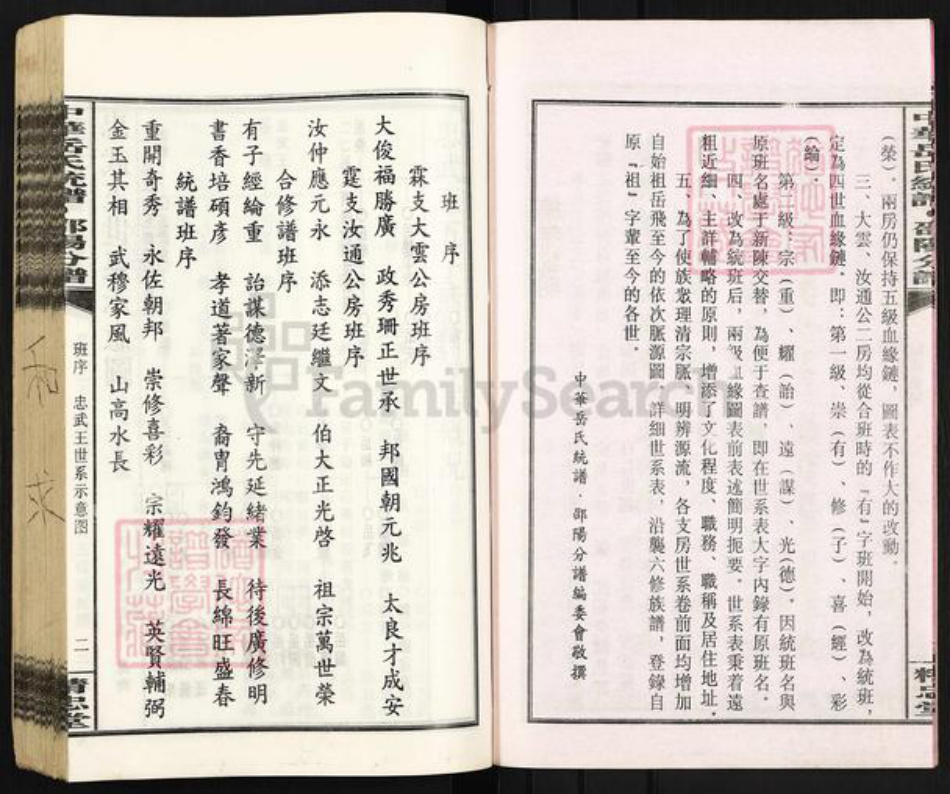 (榮)，兩房仍保持五級血緣鏈，圖表不作大的改動．
三、大雲、汝通公二房均從合班時的『有』字班開始，改為統班，
定為四世血緣鏈．即：第一級、崇(有)、修(子)、喜(經)、彩
(綸)．
第二級：宗(重)、耀(詒)、遠(謀)、光(德)．因統班名與
原班名處于新陳交替，為便于查譜，即在世系表大字內錄有原班名．
四、改為統班后，兩級血緣圖表前表述簡明扼要．世系表秉着遠
粗近細、主詳輔略的原則，增添了文化程度、職務、職稱及居住地址．
五、為了使族眾理清宗脈、明辨源流，各支房世系卷前面均增加
自始祖岳飛至今的依次脈源圖、詳細世系表，沿襲六修族譜，登錄自
原『祖』字輩至今的各世．
中華岳氏統譜·邵陽分譜編委會敬撰
中華岳氏統譜·邵陽分譜
精忠堂
班序
霖支大雲公房班序
大俊福勝廣 政秀珊正世承 邦國朝元兆 太良才成安
霆支汝通公房班序
汝仲應元永 添志廷繼文 伯大正光啓 祖宗萬世榮
合修譜班序
有子經綸重 詒謀德澤新 守先延緒業 待後廣修明
書香培碩彥 孝道著家聲 裔胄鴻鈞發 長綿旺盛春
統譜班序
重開奇秀 永佐朝邦 崇修喜彩 宗耀遠光 英賢輔弼
金玉其相 武穆家風 山高水長
中華岳氏統譜·邵陽分譜
班序 忠武王世系示意图
二
精忠堂
FamilySearch